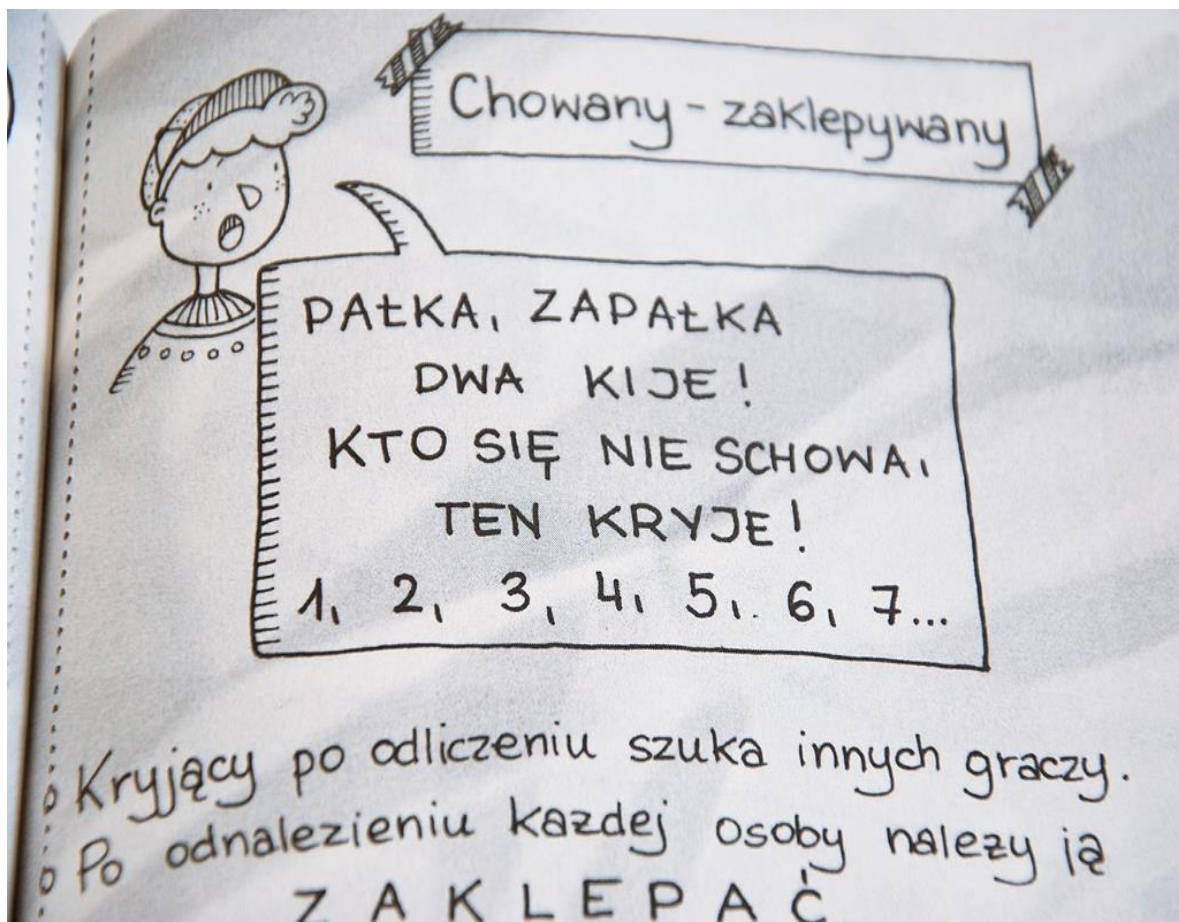 Chowany - zaklepywany
PAŁKA, ZAPAŁKA
DWA KIJE!
KTO SIĘ NIE SCHOWA,
TEN KRYJE!
1, 2, 3, 4, 5, 6, 7...
Kryjący po odliczeniu szuka innych graczy.
Po odnalezieniu każdej osoby należy ją
ZAKLEPAĆ